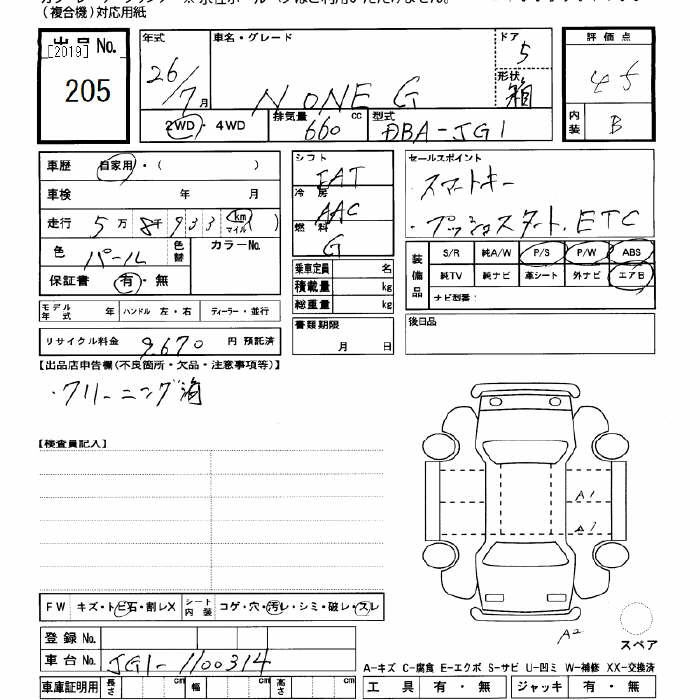 (複合機)対応用紙
出品No. [2019] 205
年式 26/7月
車名・グレード N ONE G
ドア 5
形状 箱
2WD・4WD
排気量 660 cc
型式 DBA-JG1
評価点 4.5
内装 B
車歴 自家用・( )
車検 年 月
走行 5万8千933 km マイル ( )
色 パール 色替 カラーNo.
保証書 有・無
モデル年式 年 ハンドル 左・右 ディーラー・並行
リサイクル料金 9,670 円 預託済
シフト FAT
冷房 AAC
燃料 G
乗車定員 名
積載量 kg
総重量 kg
書類期限 月 日
セールスポイント
・スマートキー
・プッシュスタート. ETC
装備品 S/R 純A/W P/S P/W ABS
純TV 純ナビ 革シート 外ナビ エアB
ナビ型番:
後日品
【出品店申告欄(不良箇所・欠品・注意事項等)】
・クリーニング済
【検査員記入】
A1
A1
A2
スペア
FW キズ・トビ石・割レX シート内装 コゲ・穴・汚レ・シミ・破レ・スレ
登録No.
車台No. JG1-1100314
車庫証明用 長さ cm 幅 cm 高さ cm
A-キズ C-腐食 E-エクボ S-サビ U-凹ミ W-補修 XX-交換済
工具 有・無 ジャッキ 有・無